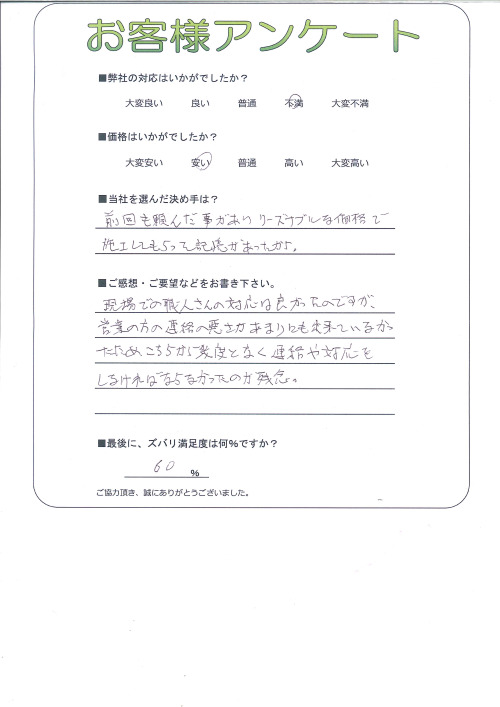 お客様アンケート
■弊社の対応はいかがでしたか?
大変良い 良い 普通 不満 大変不満
■価格はいかがでしたか?
大変安い 安い 普通 高い 大変高い
■当社を選んだ決め手は?
前回も頼んだ事があり リーズナブルな価格で
施工してもらって記憶があったから。
■ご感想・ご要望などをお書き下さい。
現場での職人さんの対応は良かったのですが、
営業の方の連絡の悪さがあまりにも
ためこちらから幾度となく連絡や対応を
しなければならなかったのが残念。
■最後に、ズバリ満足度は何%ですか?
60 %
ご協力頂き、誠にありがとうございました。